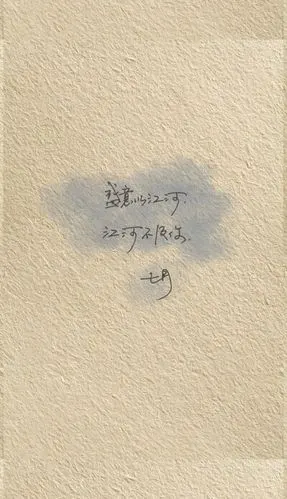 意似江河.
江河不及你.
七月